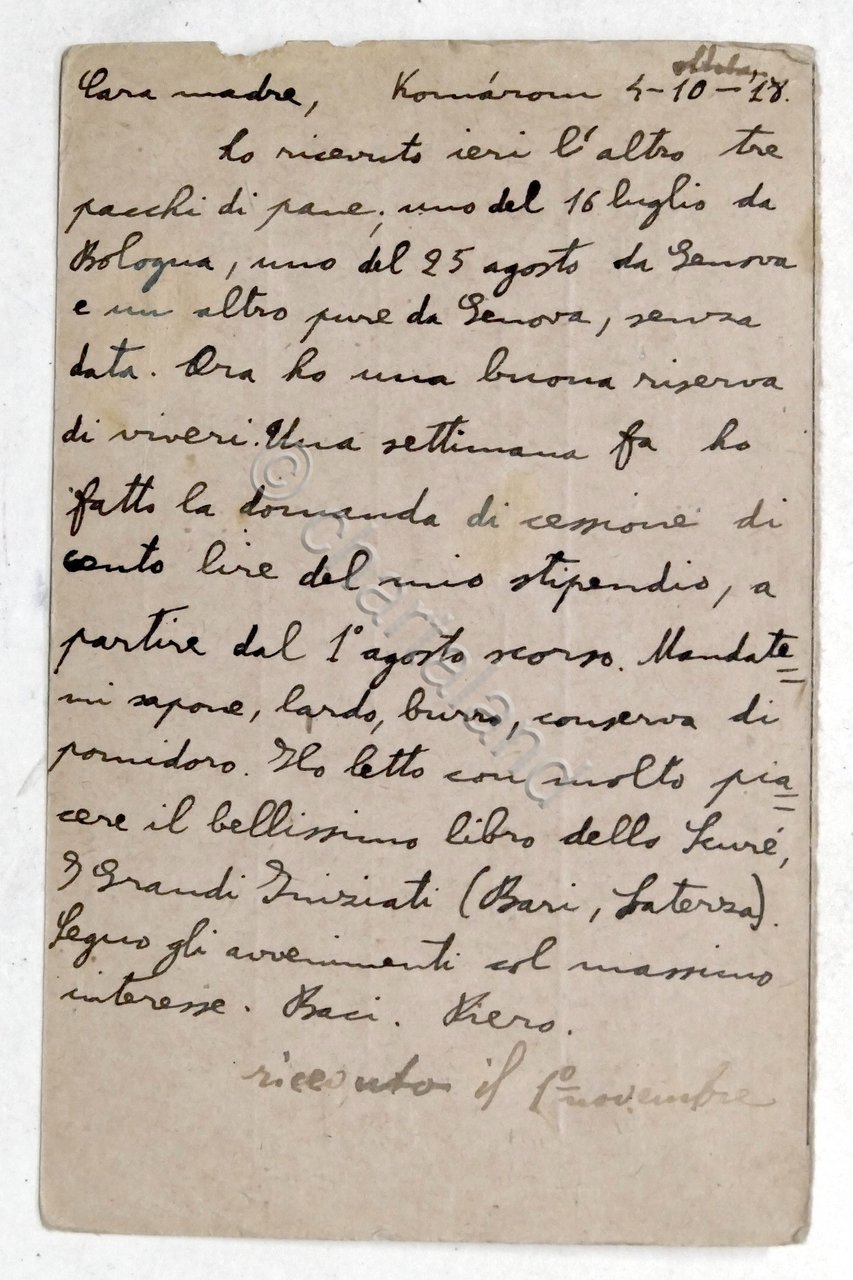 Cara madre, Komárom 4-10-18.
ho ricevuto ieri l'altro tre
pacchi di pane; uno del 16 luglio da
Bologna, uno del 25 agosto da Genova
e un altro pure da Genova, senza
data. Ora ho una buona riserva
di viveri. Una settimana fa ho
fatto la domanda di cessione di
cento lire del mio stipendio, a
partire dal 1° agosto scorso. Mandate=
mi sapone, lardo, burro, conserva di
pomidoro. Ho letto con molto pia=
cere il bellissimo libro dello Scuré,
I Grandi Iniziati (Bari, Laterza).
Seguo gli avvenimenti col massimo
interesse. Baci. Piero.
ricevuto il 1° novembre
© chartaland